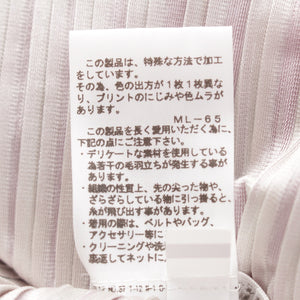 この製品は、特殊な方法で加工
をしています。
その為、色の出方が1枚1枚異な
り、プリントのにじみや色ムラが
あります。
ML-65
この製品を長く愛用いただく為に、
下記の点にご注意下さい。
・デリケートな素材を使用している
為若干の毛羽立ちが発生する事が
あります。
・組織の性質上、先の尖った物や、
ざらざらしている物に引っ掛ると、
糸が飛び出す事があります。
・着用の際は、ベルトやバッグ、
アクセサリー等に
・クリーニングや洗
裏返してネットに、